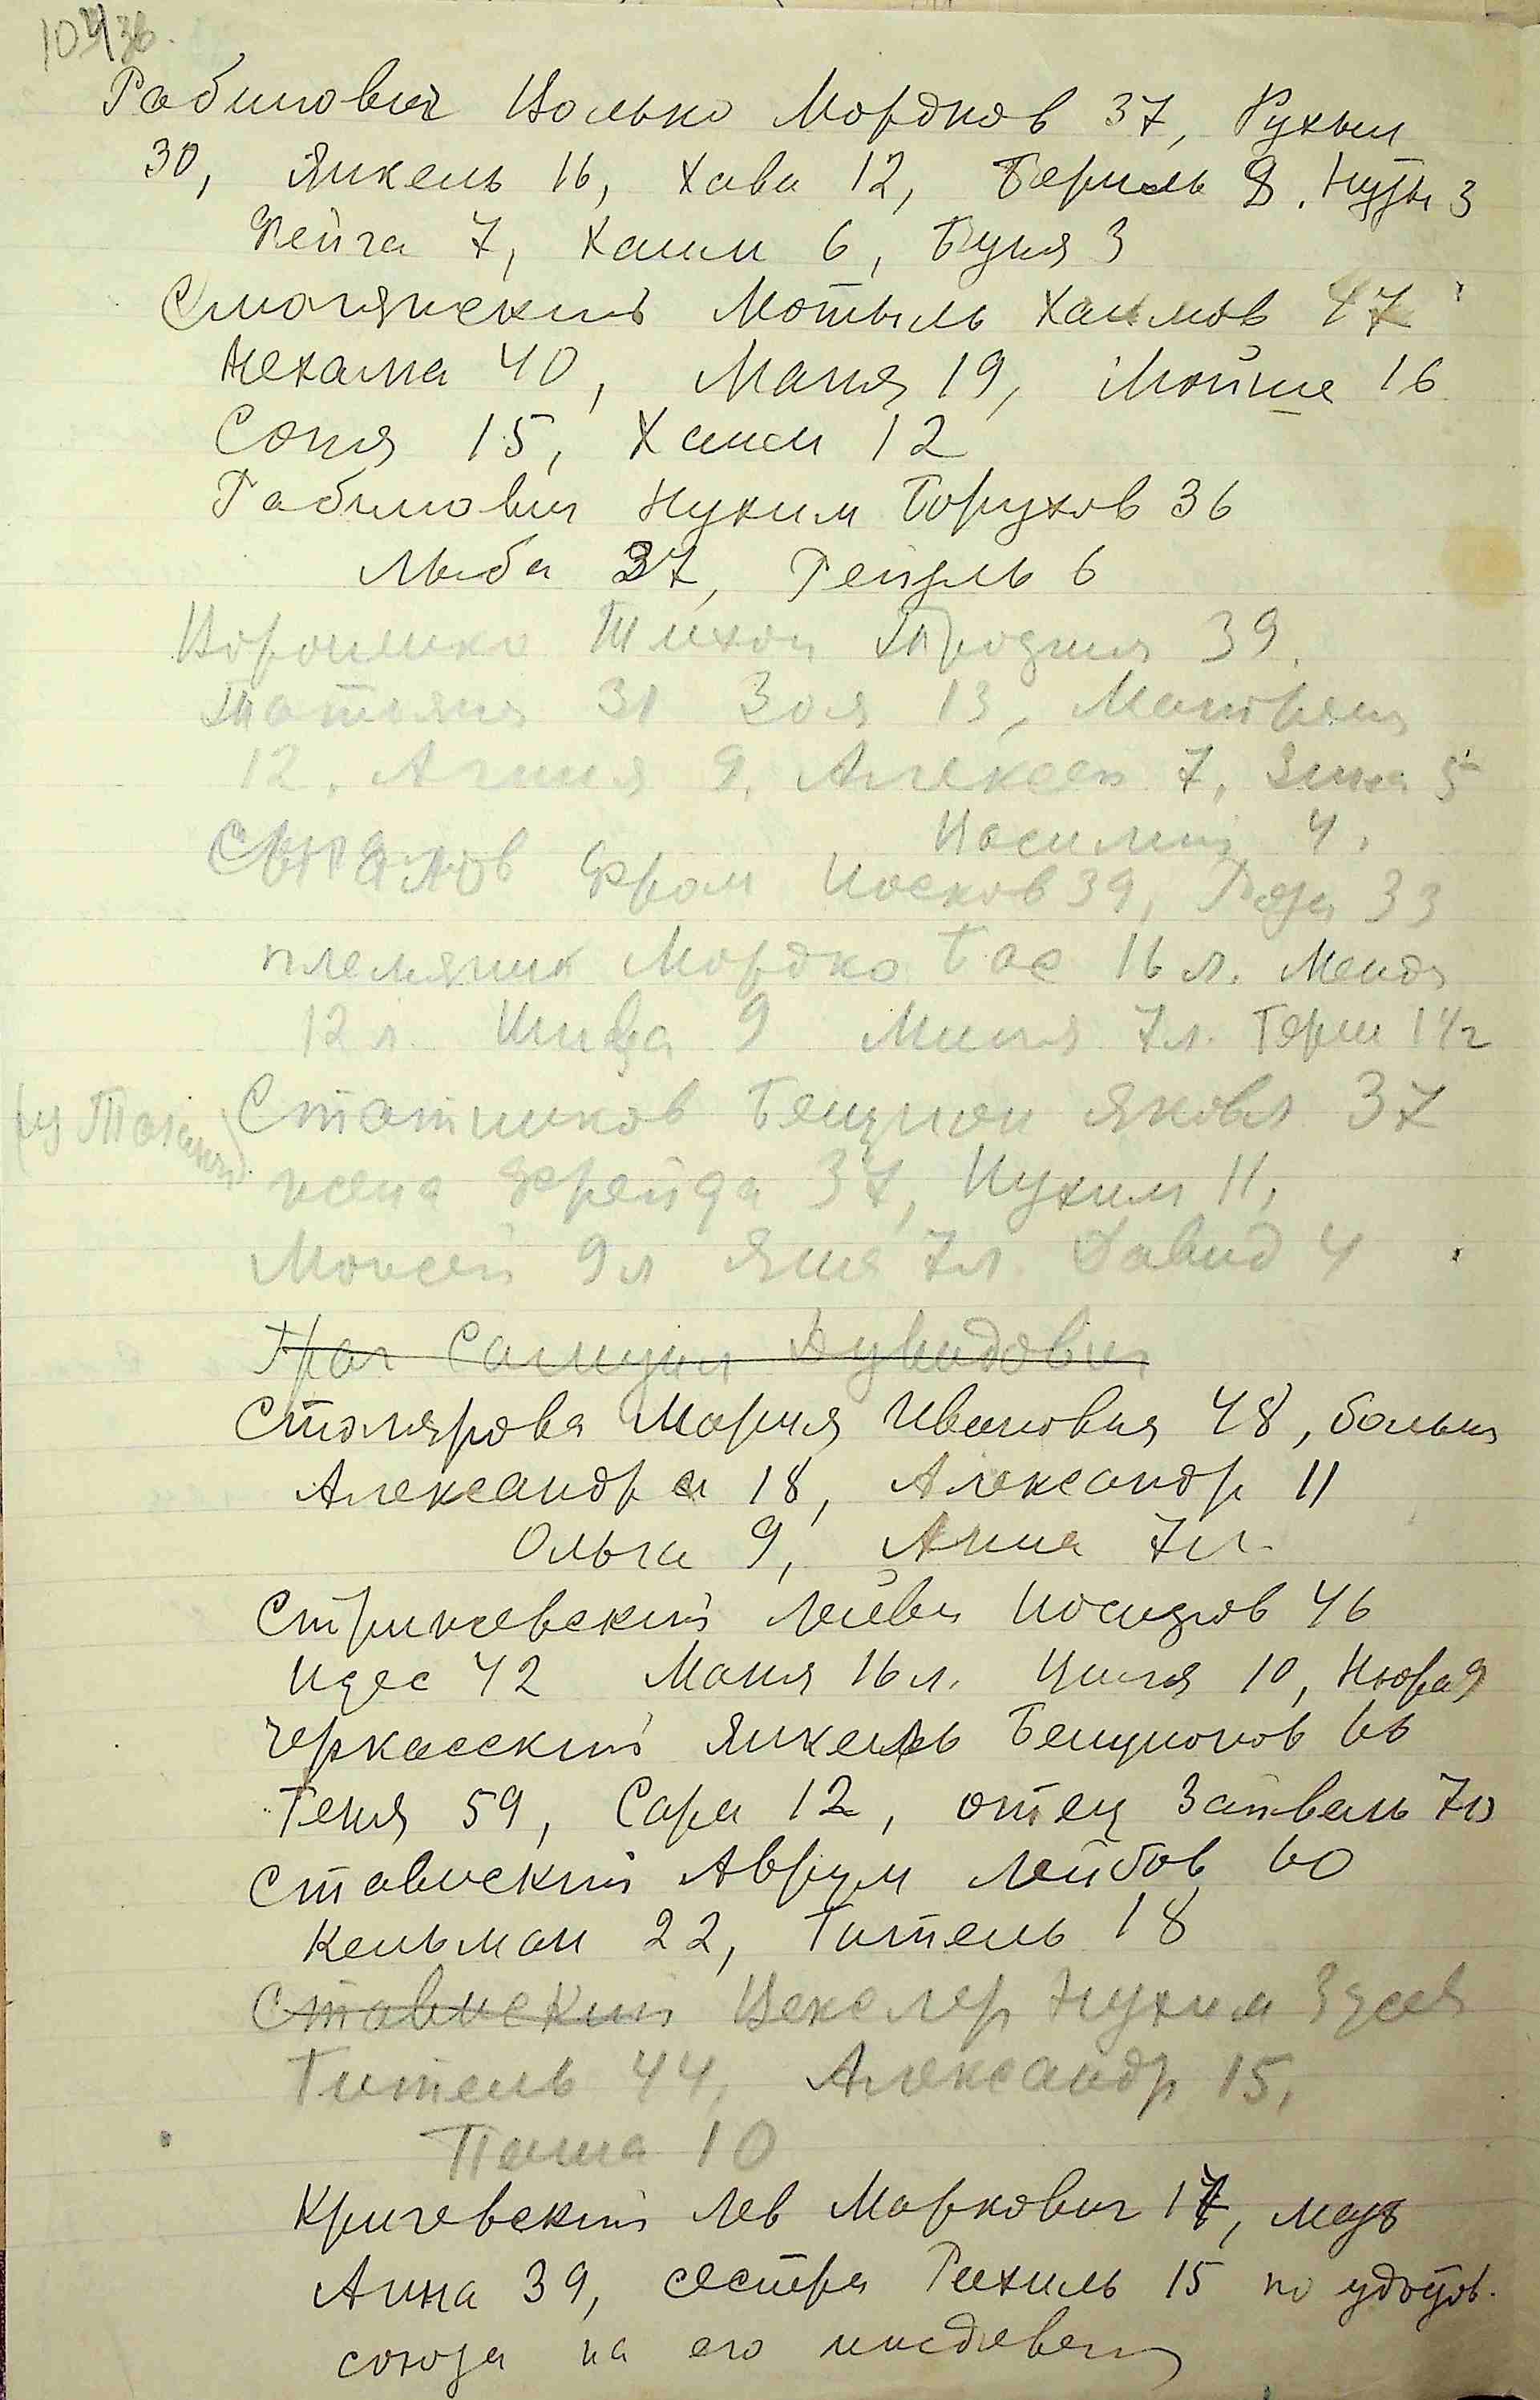 Рабинович Волько Мордков 37, Рухыл
30, Янкель 16, Хава 12, Бериль 8, Нута 3
Фейга 7, Хаим 6, Буня 3
Смолянский Мотыль Хаимов 47
Нехама 40, Маня 19, Мойше 16
Соня 15, Хаим 12
Рабинович Нухим Борухов 36
Лыба 37, Рейзель 6
Вороненко Тихон 39.
Татьяна 31 Зоя 13,
12, Агния 9, Алексей 7, Зина 5
Василий 4.
Фроим Иосков 39, Роза 33
племянник Мордко Бас 16 л. Меня
12 л. Шифра 9 Миня 7 л. Герш 1 1/2
Статников Бенцион Яковл 37
жена Фрейда 37, Нухим 11,
Моисей 9 л Яша 7 л. Давид 4
Граг Самуил Дувидович
Столярова Мария Ивановна 48, больна
Александра 18, Александр 11
Ольга 9, Анна 7 л.
Стрижевский Лейви Иосифов 46
Идес 42 Маня 16 л. Циля 10, Нюра 9
Черкасский Янкель Бенционов 66
Геня 59, Сара 12, отец Завель 70
Ставиский Аврум Лейбов 60
Кельман 22, Гитель 18
Ставиский Векслер Нухим Зусев
Гитель 44, Александр 15,
Паша 10
Кричевский Лев Маркович 17, мать
Анна 39, сестра Рахиль 15 по удостов.
союза на его иждивении